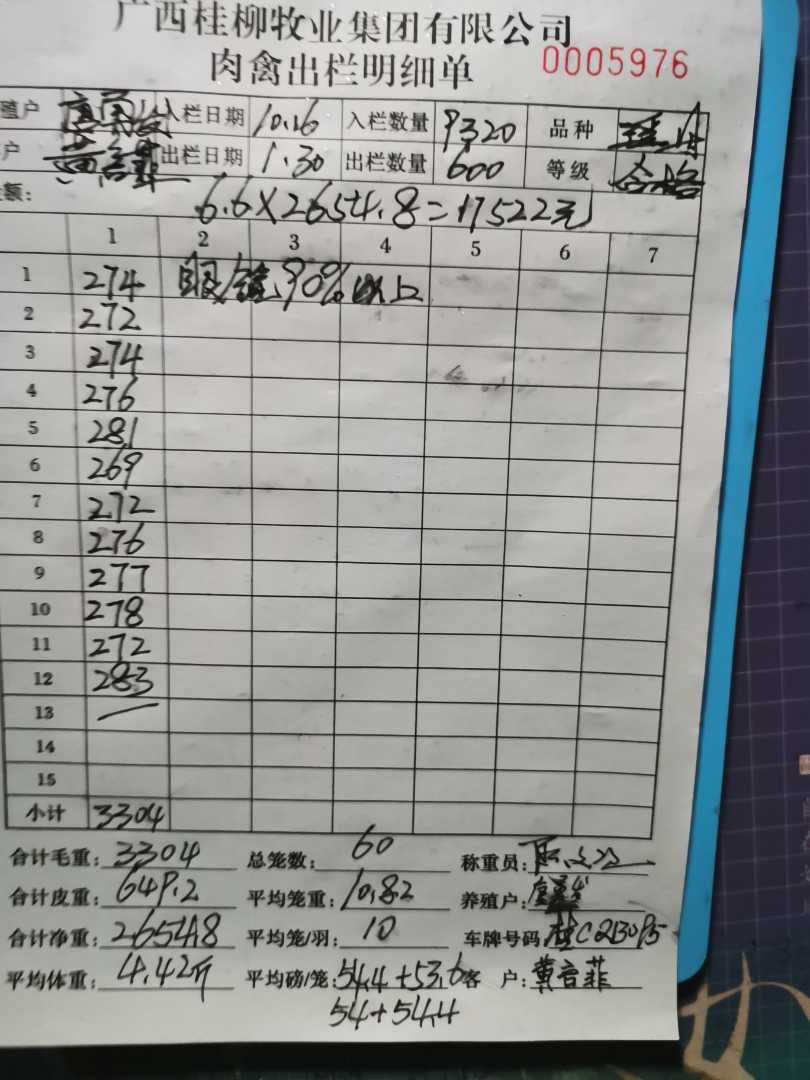 广西桂柳牧业集团有限公司
肉禽出栏明细单 0005976
殖户 入栏日期 10.26 入栏数量 9320 品种
户 出栏日期 1.30 出栏数量 600 等级 合格
额: 6.6×2654.8=17522元
1 2 3 4 5 6 7
1 274 眼镜90%以上
2 272
3 274
4 276
5 281
6 269
7 272
8 276
9 277
10 278
11 272
12 283
13
14
15
小计 3304
合计毛重: 3304 总笼数: 60 称重员:
合计皮重: 649.2 平均笼重: 10.82 养殖户:
合计净重: 2654.8 平均笼/羽: 10 车牌号码 桂C
平均体重: 4.42斤 平均磅/笼: 54.4+53.6 客 户: 黄音菲
54+54.4